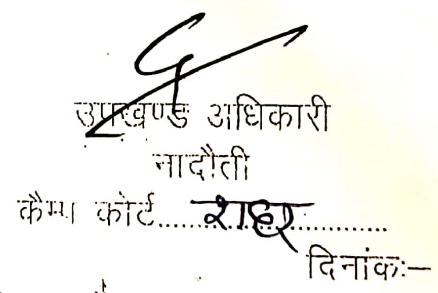 उपखण्ड अधिकारी
नादौती
कैम्प कोर्ट.......................
दिनांक:-